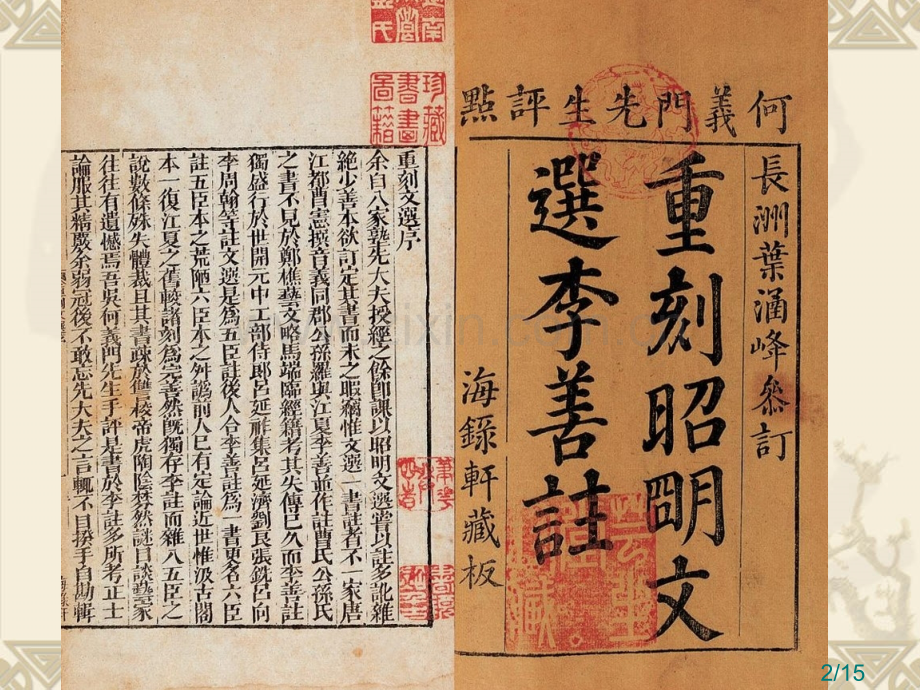 何義門先生評點
長洲葉涵峰參訂
重刻昭明文
選李善註
海錄軒藏板
重刻文選序
余自入家塾先大夫授經之餘即課以昭明文選嘗以註多訛雜
絕少善本欲訂定其書而未之暇竊惟文選一書註者不一家唐
江都曹憲撰音義同郡公孫羅與江夏李善並作註曹氏公孫氏
之書不見於鄭樵藝文略馬端臨經籍考其失傳已久而李善註
獨盛行於世開元中工部侍郎呂延祚集呂延濟劉良張銑呂向
李周翰等註文選是為五臣註後人合李善註為一書更名六臣
註五臣本之荒陋六臣本之舛譌前人已有定論近世惟汲古閣
本一復江夏之舊較諸刻為完善然既獨存李註而雜入五臣之
說數條殊失體裁且其書疎於讐校帝虎陶陰棼然謎目談藝家
往往有遺憾焉吾吳何義門先生手評是書於李註多所考正士
論服其精嚴余弱冠後不敢忘先大夫之言輒不自揆手自勘輯
珍藏
書畫
圖籍
2/15